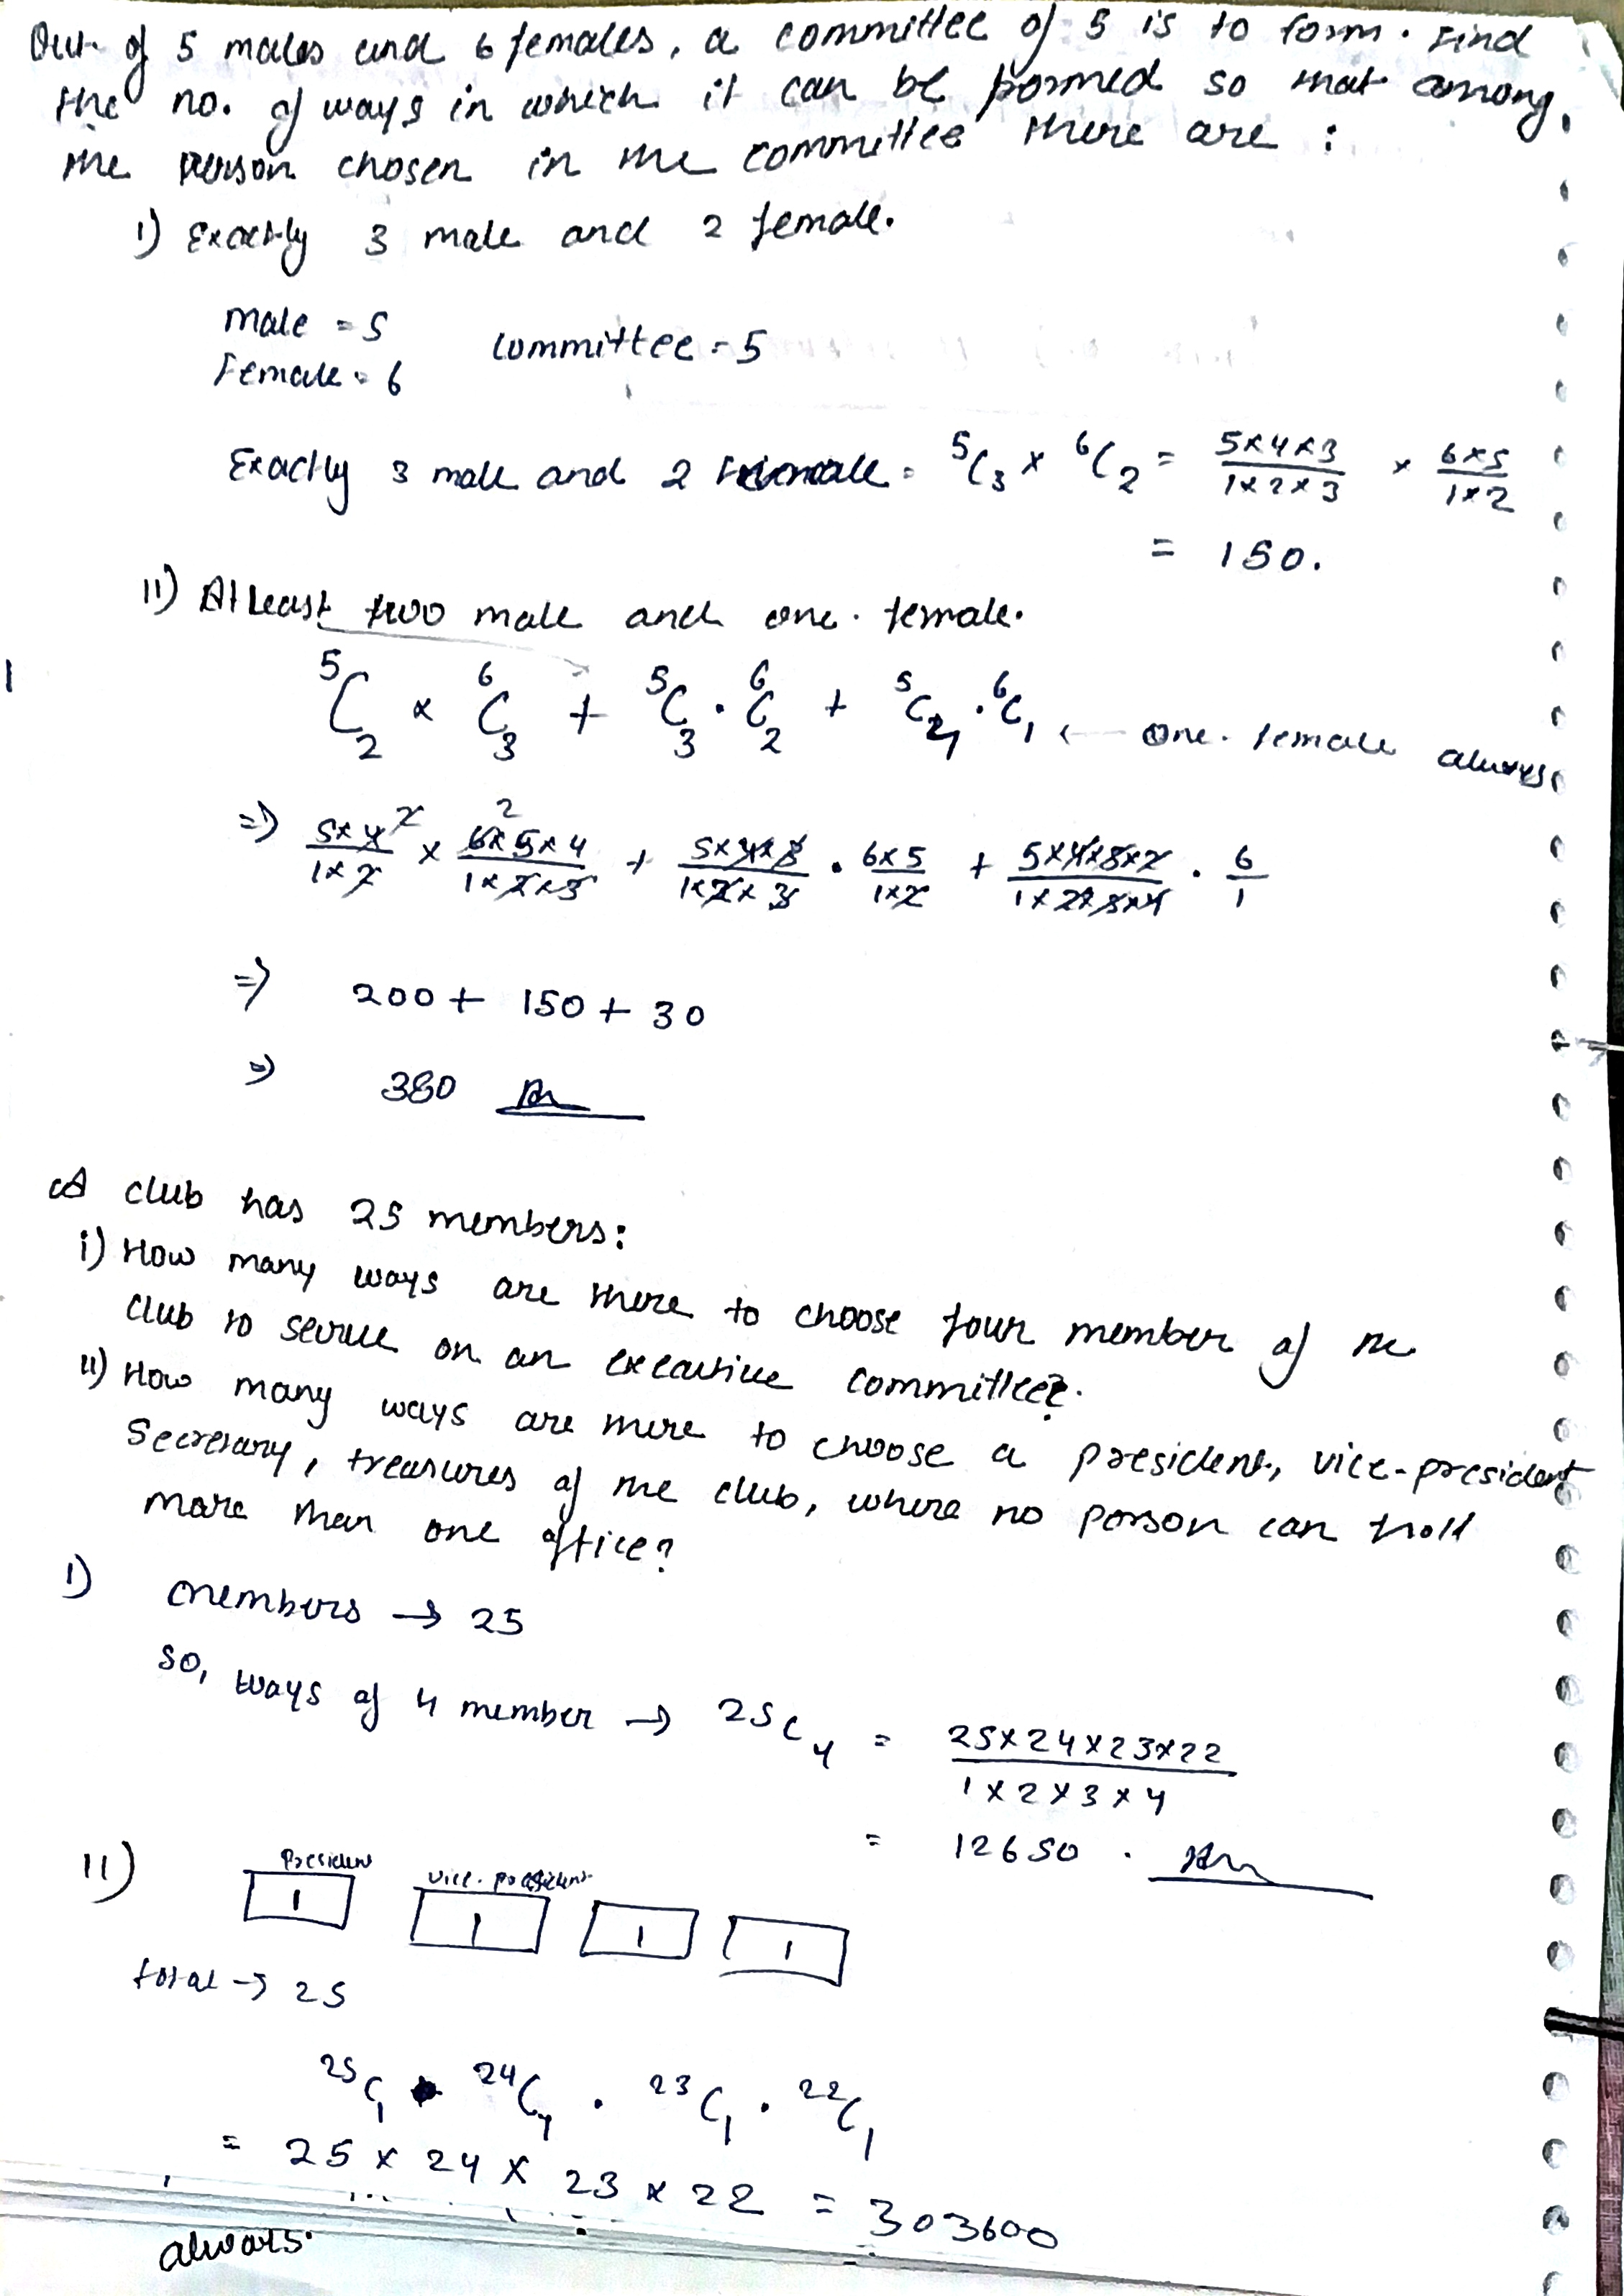 Out of 5 males and 6 females, a committee of 5 is to form. Find
the no. of ways in which it can be formed so that among
the person chosen in the committee there are :
i) Exactly 3 male and 2 female.
male = 5
Female = 6
committee = 5
Exactly 3 male and 2 female = ⁵C₃ × ⁶C₂ = 5×4×3/1×2×3 × 6×5/1×2
= 150.
ii) Atleast two male and one female.
⁵C₂ × ⁶C₃ + ⁵C₃ . ⁶C₂ + ⁵C₄ . ⁶C₁ ← one female always
=> 5×4/1×2 × 6×5×4/1×2×3 + 5×4×3/1×2×3 . 6×5/1×2 + 5×4×3×2/1×2×3×4 . 6/1
=> 200 + 150 + 30
=> 380 Ans
A club has 25 members:
i) How many ways are there to choose four member of the
club to serve on an executive committee?
ii) How many ways are there to choose a president, vice-president
secretary, treasures of the club, where no person can hold
more than one office?
i) members → 25
So, ways of 4 member → 25C₄ = 25×24×23×22/1×2×3×4
= 12650 . Ans
ii) President vice-president
1 1 1 1
total → 25
²⁵C₁ . ²⁴C₁ . ²³C₁ . ²²C₁
= 25 × 24 × 23 × 22 = 303600
always.